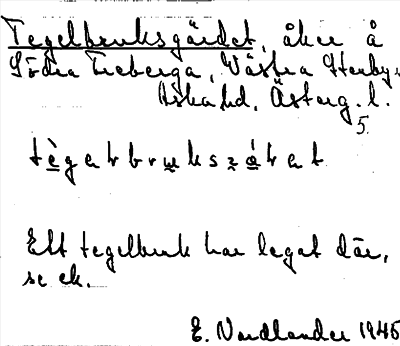 Tegelbruksgärdet, åker å
Södra Freberga, Västra Stenby s
Aska hd, Österg. l.
5
tègəlbrukszǻḷət
Ett tegelbruk har legat där,
se ek.
E. Nordlander 1945